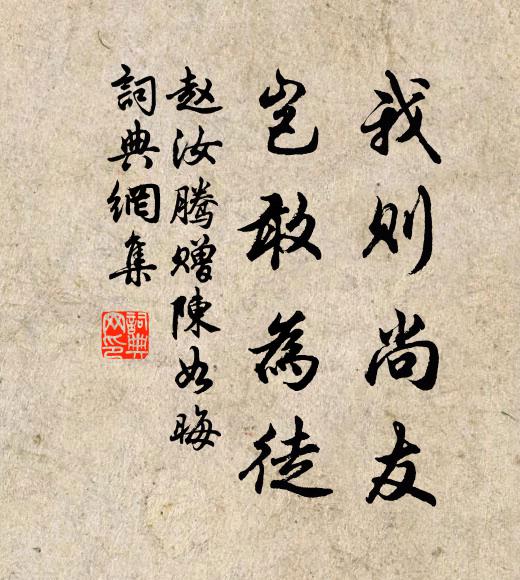 我则尚友
岂敢為徒
赵汝腾赠陳如晦
詞典網集
詞典網印